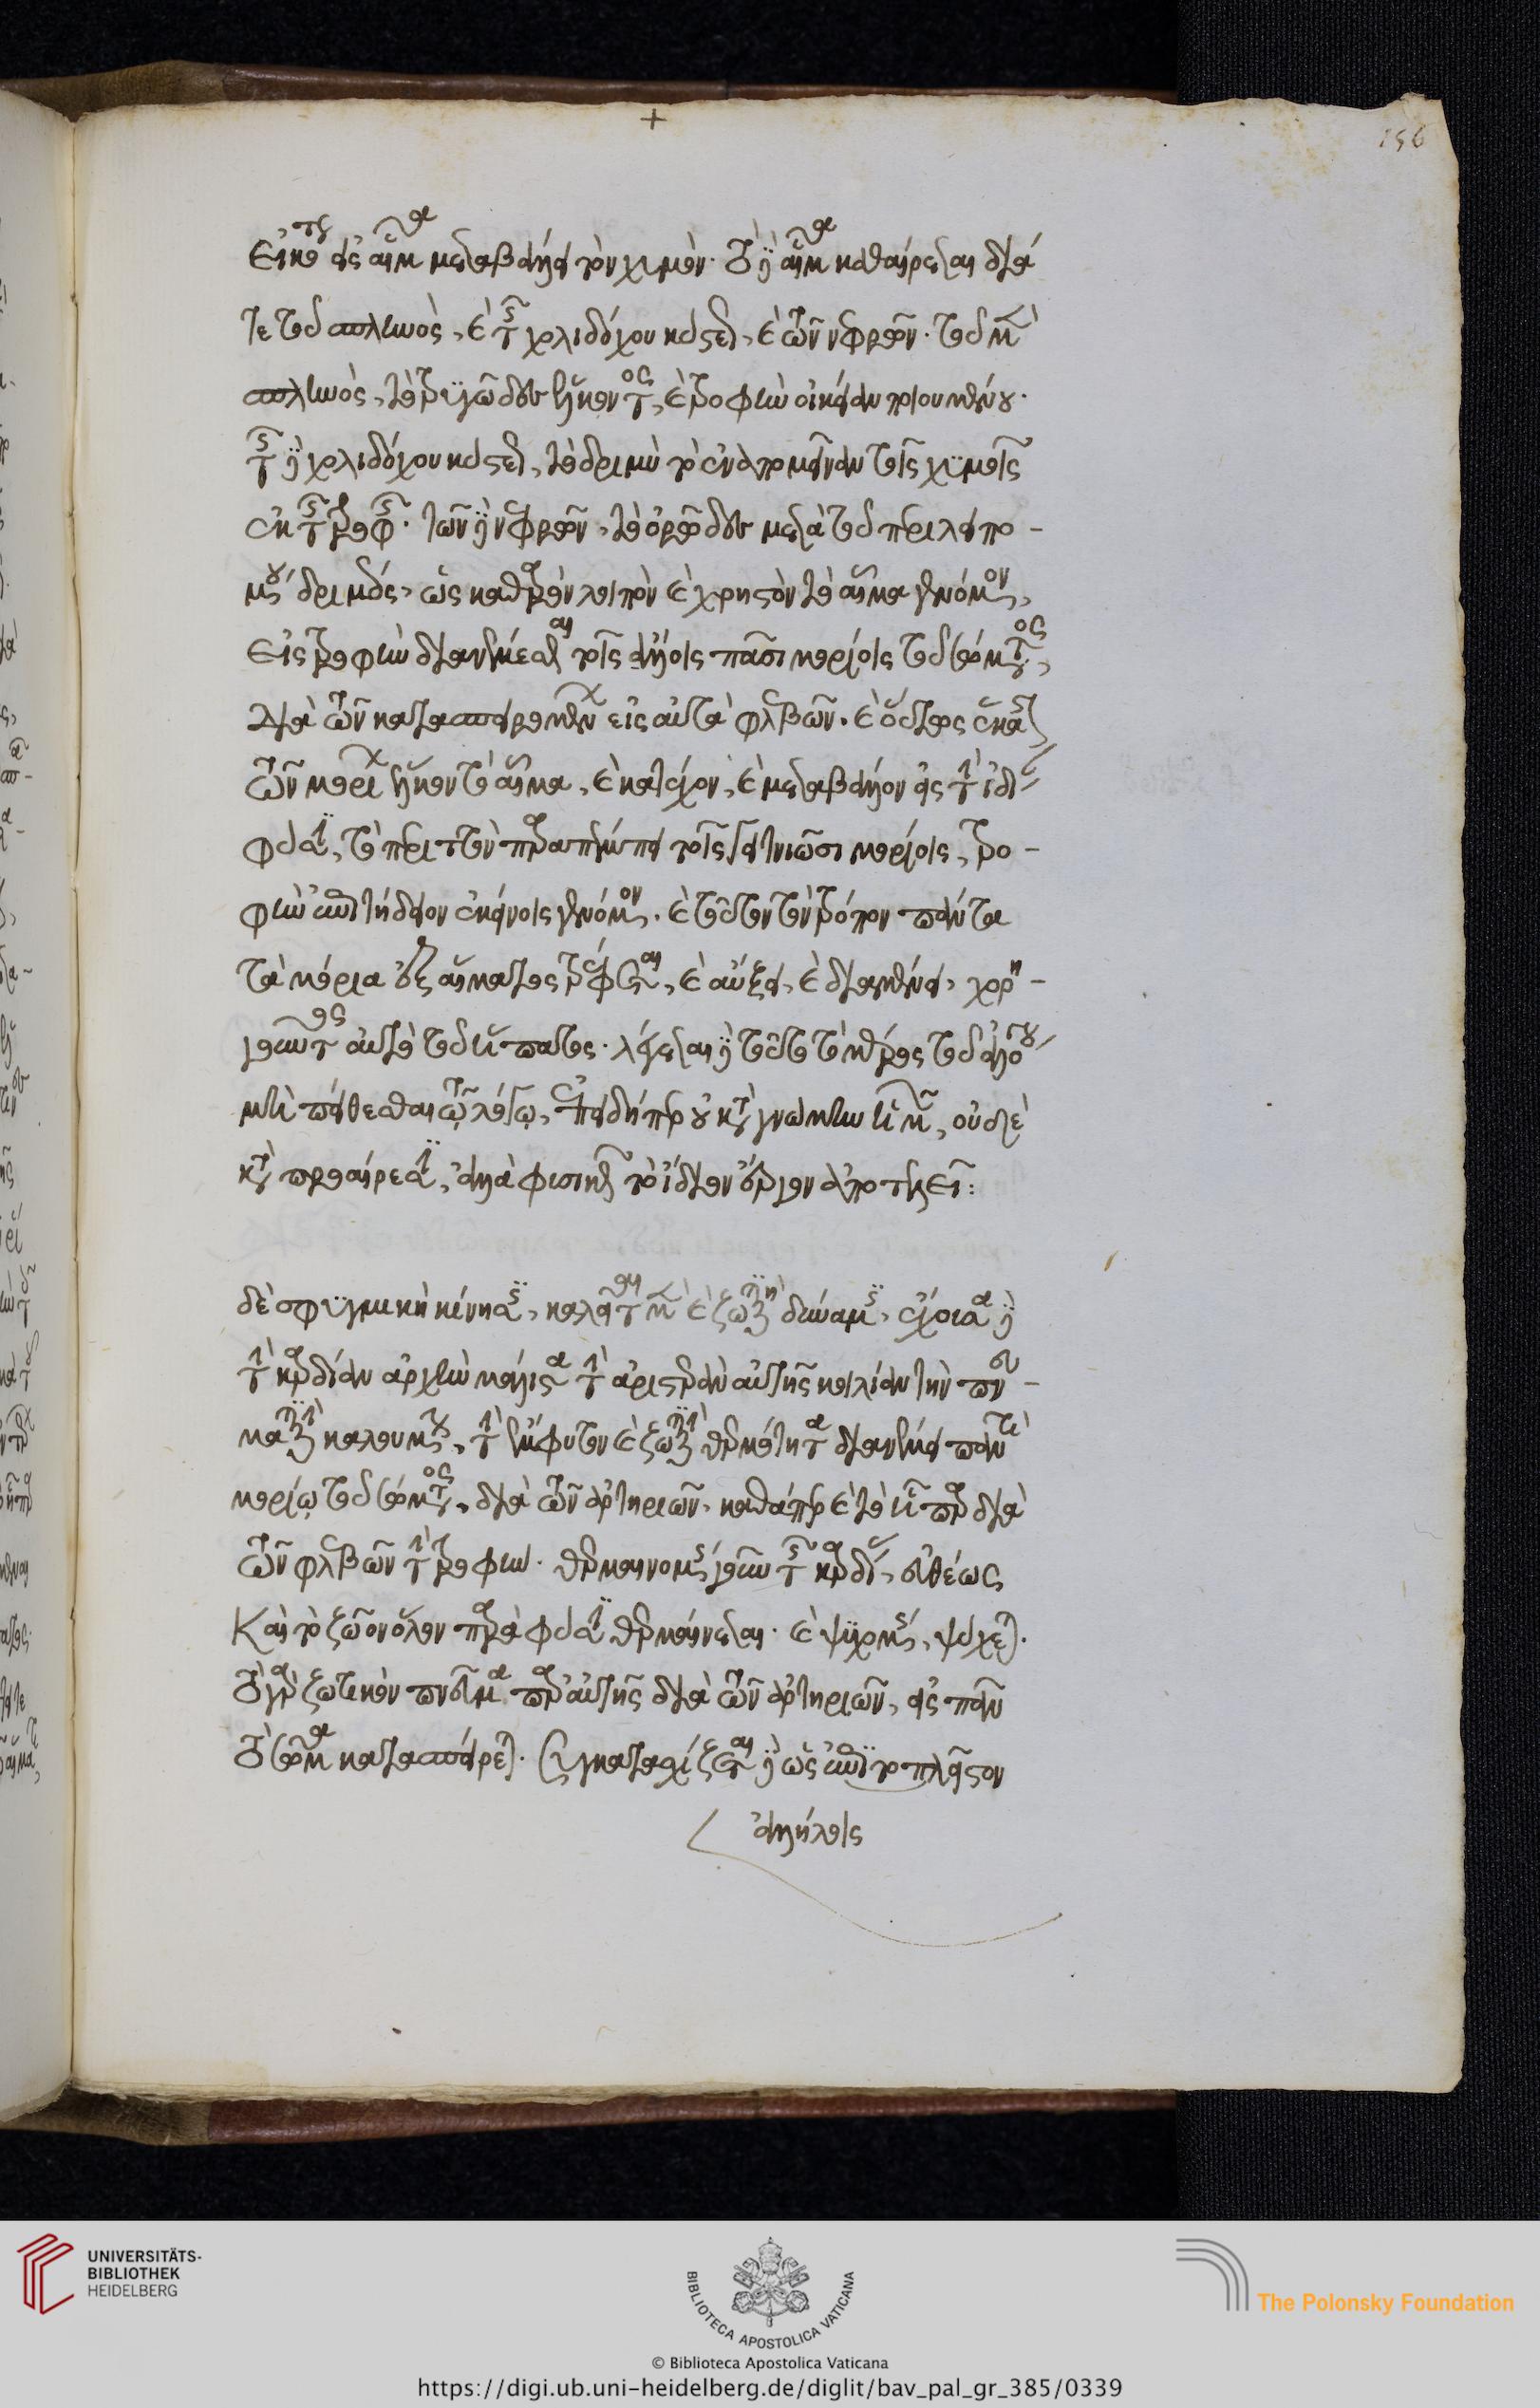 ἐκεῖνο εἰς αἷμα μεταβάλλει τὸν χυμόν. τὸ δὲ αἷμα καθαίρεται διά
τε τοῦ σπληνὸς, καὶ τῆς χοληδόχου κύστεως, καὶ τῶν νεφρῶν. τοῦ μὲν
σπληνὸς, τὸ τρυγῶδες ἕλκοντος, καὶ τροφὴν οἰκείαν ποιουμένου.
τῆς δὲ χοληδόχου κύστεως, τὸ δριμὺ τὸ ἐναπομεῖναν τοῖς χυμοῖς
ἐκ τῆς τροφῆς. τῶν δὲ νεφρῶν, τὸ ὀρῶδες μετὰ τοῦ περιλειπο-
μένου δριμέος, ὡς καθαρὸν λοιπὸν καὶ χρηστὸν τὸ αἷμα γενόμενον,
εἰς τροφὴν διανέμεσθαι τοῖς ἄλλοις πᾶσι μορίοις τοῦ σώματος,
διὰ τῶν κατεσπαρμένων εἰς αὐτὰ φλεβῶν. καὶ οὕτως ἕκαστον
τῶν μορίων ἕλκον τὸ αἷμα, καὶ κατέχον, καὶ μεταβάλλον εἰς τὴν ἰδίαν
φύσιν, τὸ περιττὸν παραπέμπει τοῖς γειτνιῶσι μορίοις, τρο-
φὴν ἐπιτήδειον ἐκείνοις γενόμενον. καὶ τοῦτον τὸν τρόπον πάντα
τὰ μόρια ἐξ αἵματος τρέφεται, καὶ αὔξει, καὶ διαμένει, χορη-
γοῦντος αὐτὸ τοῦ ἥπατος. λέγεται δὲ τοῦτο τὸ μέρος τοῦ ἀλόγου
μὴ πείθεσθαι τῷ λόγῳ, ἐπειδήπερ οὐ κατὰ γνώμην ἡμῶν, οὐδὲ
κατὰ προαίρεσιν, ἀλλὰ φυσικῶς τὸ ἴδιον ἔργον ἀποτελεῖ:
δὲ σφυγμικὴ κίνησις, καλεῖται μὲν καὶ ζωτικὴ δύναμις, ἔχουσα δὲ
τὴν καρδίαν ἀρχὴν μάλιστα τὴν ἀριστερὰν αὐτῆς κοιλίαν τὴν πνευ-
ματικὴν καλουμένην, τὴν ἔμφυτον καὶ ζωτικὴν θερμότητα διανέμει παντὶ
μορίῳ τοῦ σώματος, διὰ τῶν ἀρτηριῶν. καθάπερ καὶ τὸ ἧπαρ διὰ
τῶν φλεβῶν τὴν τροφήν. θερμαινομένης γοῦν τῆς καρδίας, εὐθέως
καὶ τὸ ζῶον ὅλον παρὰ φύσιν θερμαίνεται. καὶ ψυχομένης, ψύχεται.
τὸ γὰρ ζωτικὸν πνεῦμα παρ' αὐτῆς διὰ τῶν ἀρτηριῶν, εἰς πᾶν
τὸ σῶμα κατασπείρεται. συγκατασχίζεται δὲ ὡς ἐπὶ τὸ πλεῖστον
ἀλλήλοις
+
156
UNIVERSITÄTS-
BIBLIOTHEK
HEIDELBERG
BIBLIOTECA APOSTOLICA VATICANA
© Biblioteca Apostolica Vaticana
The Polonsky Foundation
https://digi.ub.uni-heidelberg.de/diglit/bav_pal_gr_385/0339